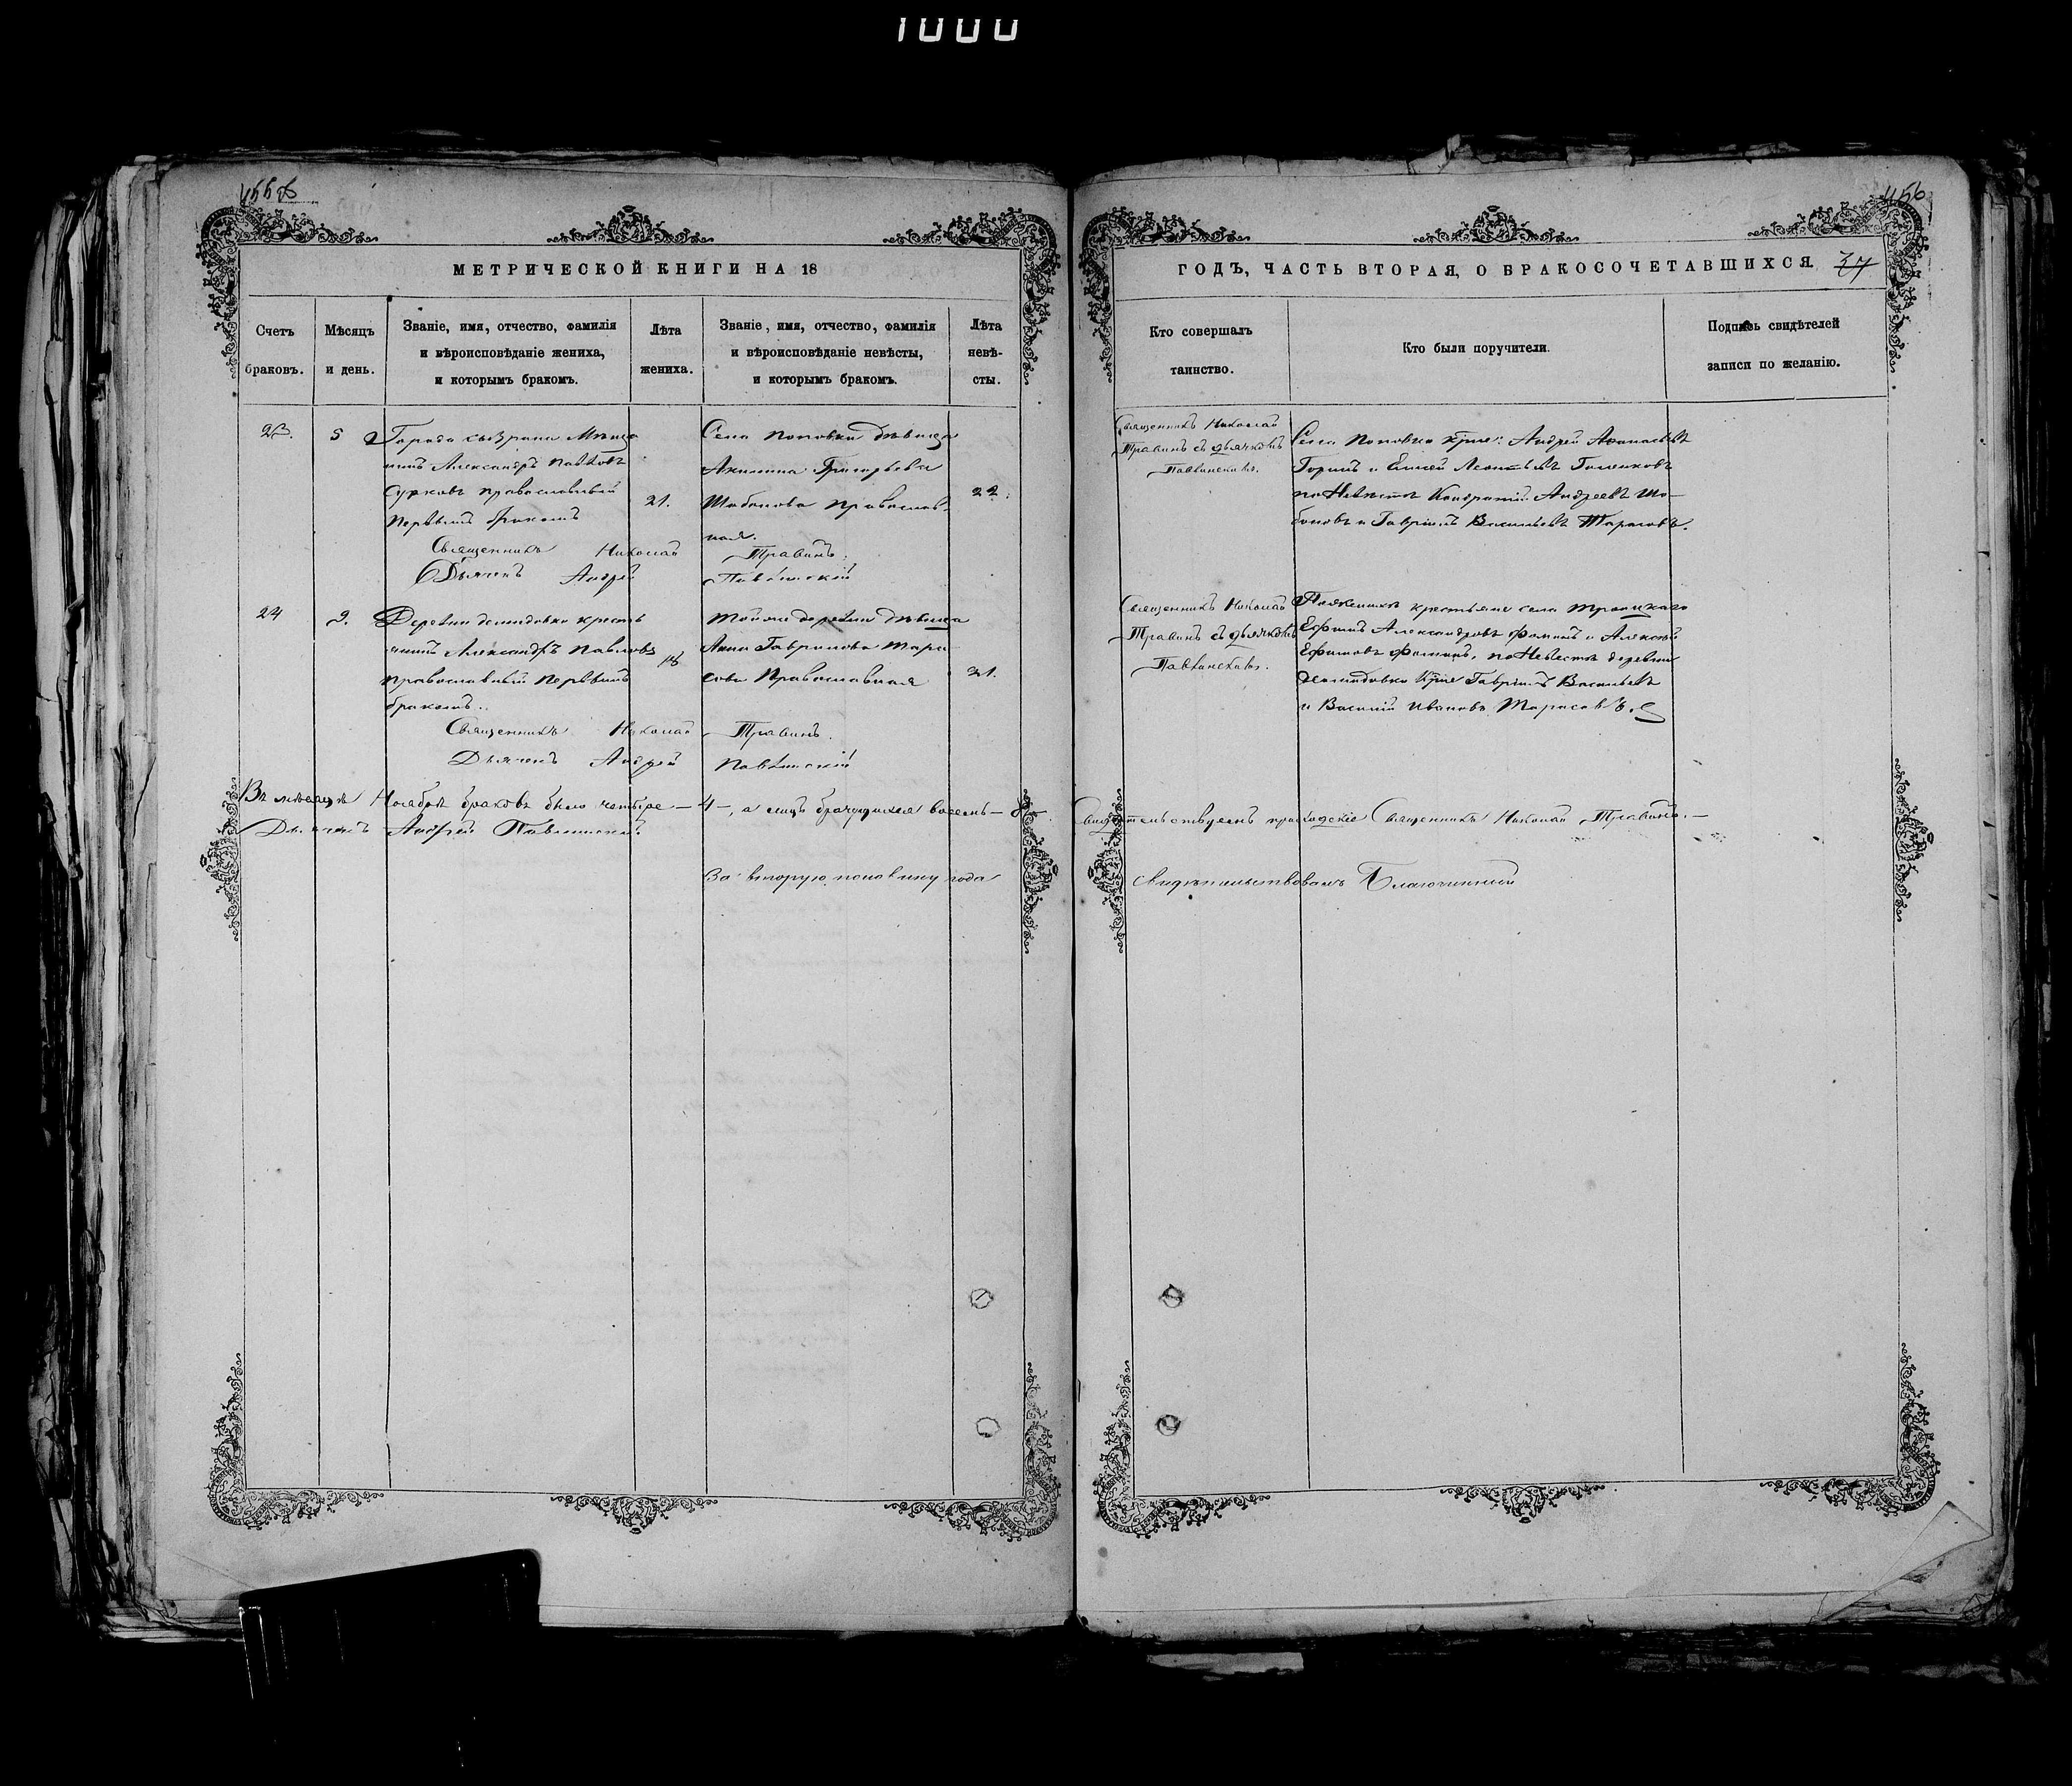 1000
455 об
456
МЕТРИЧЕСКОЙ КНИГИ НА 18
Счетъ браковъ.
Мѣсяцъ и день.
Званіе, имя, отчество, фамилія
и вѣроисповѣданіе жениха,
и которымъ бракомъ.
Лѣта жениха.
Званіе, имя, отчество, фамилія
и вѣроисповѣданіе невѣсты,
и которымъ бракомъ.
Лѣта невѣ-
сты.
23.
5
Города Сызрана Мѣща
нинъ Александръ Павловъ
Сурковъ православный
первымъ бракомъ
21.
Села Поповки дѣвица
Акилина Григорьева
Шабанова Православ-
ная.
22.
Священникъ Николай Травинъ.
Дьячекъ Андрей Павлинскій
24
9.
Деревни Демидовки кресть
янинъ Александръ Павловъ
православный первымъ
бракомъ.
18
Тойже деревни дѣвица
Анна Гаврилова Тара
сова Православная
21.
Священникъ Николай Травинъ.
Дьячекъ Андрей Павлинскій
Въ месяцѣ Ноябрѣ браковъ было четыре — 4 —, а лицъ брачущихся восемь — 8 —
Дьячекъ Андрей Павлинскій
За вторую половину года
ГОДЪ, ЧАСТЬ ВТОРАЯ, О БРАКОСОЧЕТАВШИХСЯ.
37
Кто совершалъ
таинство.
Кто были поручители.
Подпись свидѣтелей
записи по желанію.
Священникъ Николай
Травинъ съ дьячкомъ
Павлинскимъ.
Села Поповки Крте: Андрей
и Леонтьевъ
по Невѣстѣ Кондратій Андреевъ Ша-
бановъ и Гаврiилъ Васильевъ Тарасовъ.
Священникъ Николай
Травинъ съ дьячкомъ
Павлинскимъ.
По женихѣ крестьяне села Троицкаго
Ефимъ Александровъ Фоминъ и Алексѣй
Ефимовъ Фоминъ, по Невѣстѣ деревни
Демидовки Крте Гаврiилъ Васильевъ
и Василій Ивановъ Тарасовъ.
Свидѣтельствуемъ приходскіе Священникъ Николай Травинъ. —
свидѣтельствовалъ Благочинный